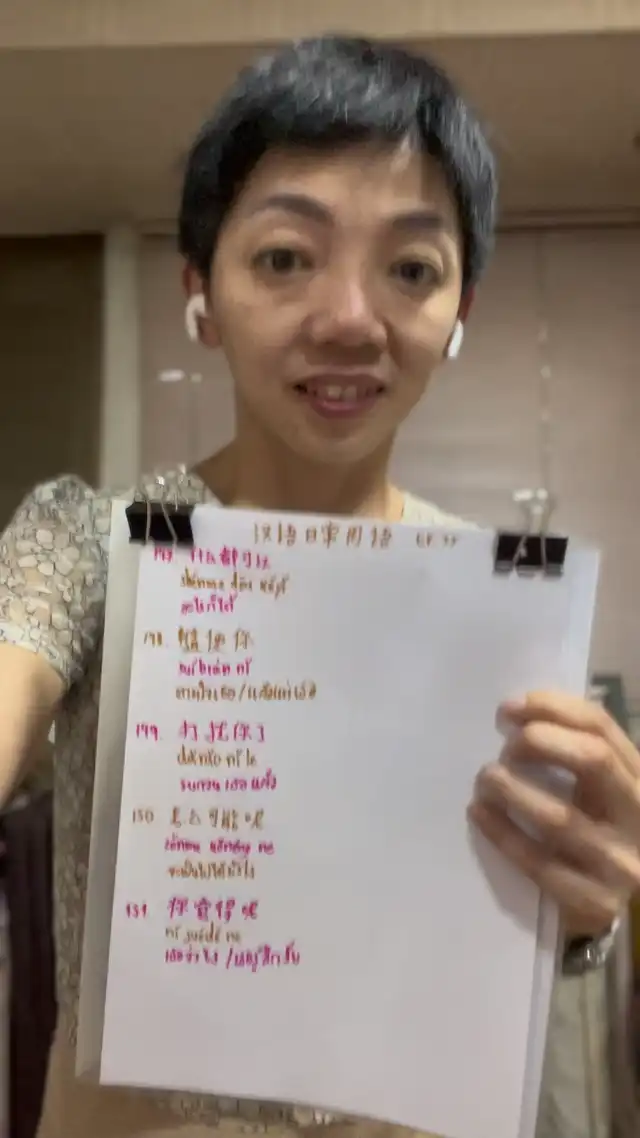 汉语日常用语 EP
147. 什么都可以
shénme dōu kěyǐ
อะไรก็ได้
148. 随便你
suíbiàn nǐ
ตามใจเธอ / แล้วแต่เธอ
149. 打扰你了
dǎrǎo nǐ le
รบกวนเธอแล้ว
150 怎么可能呢
zěnme kěnéng ne
จะเป็นไปได้ยังไง
151. 你觉得呢
nǐ juédé ne
เธอว่าไง /